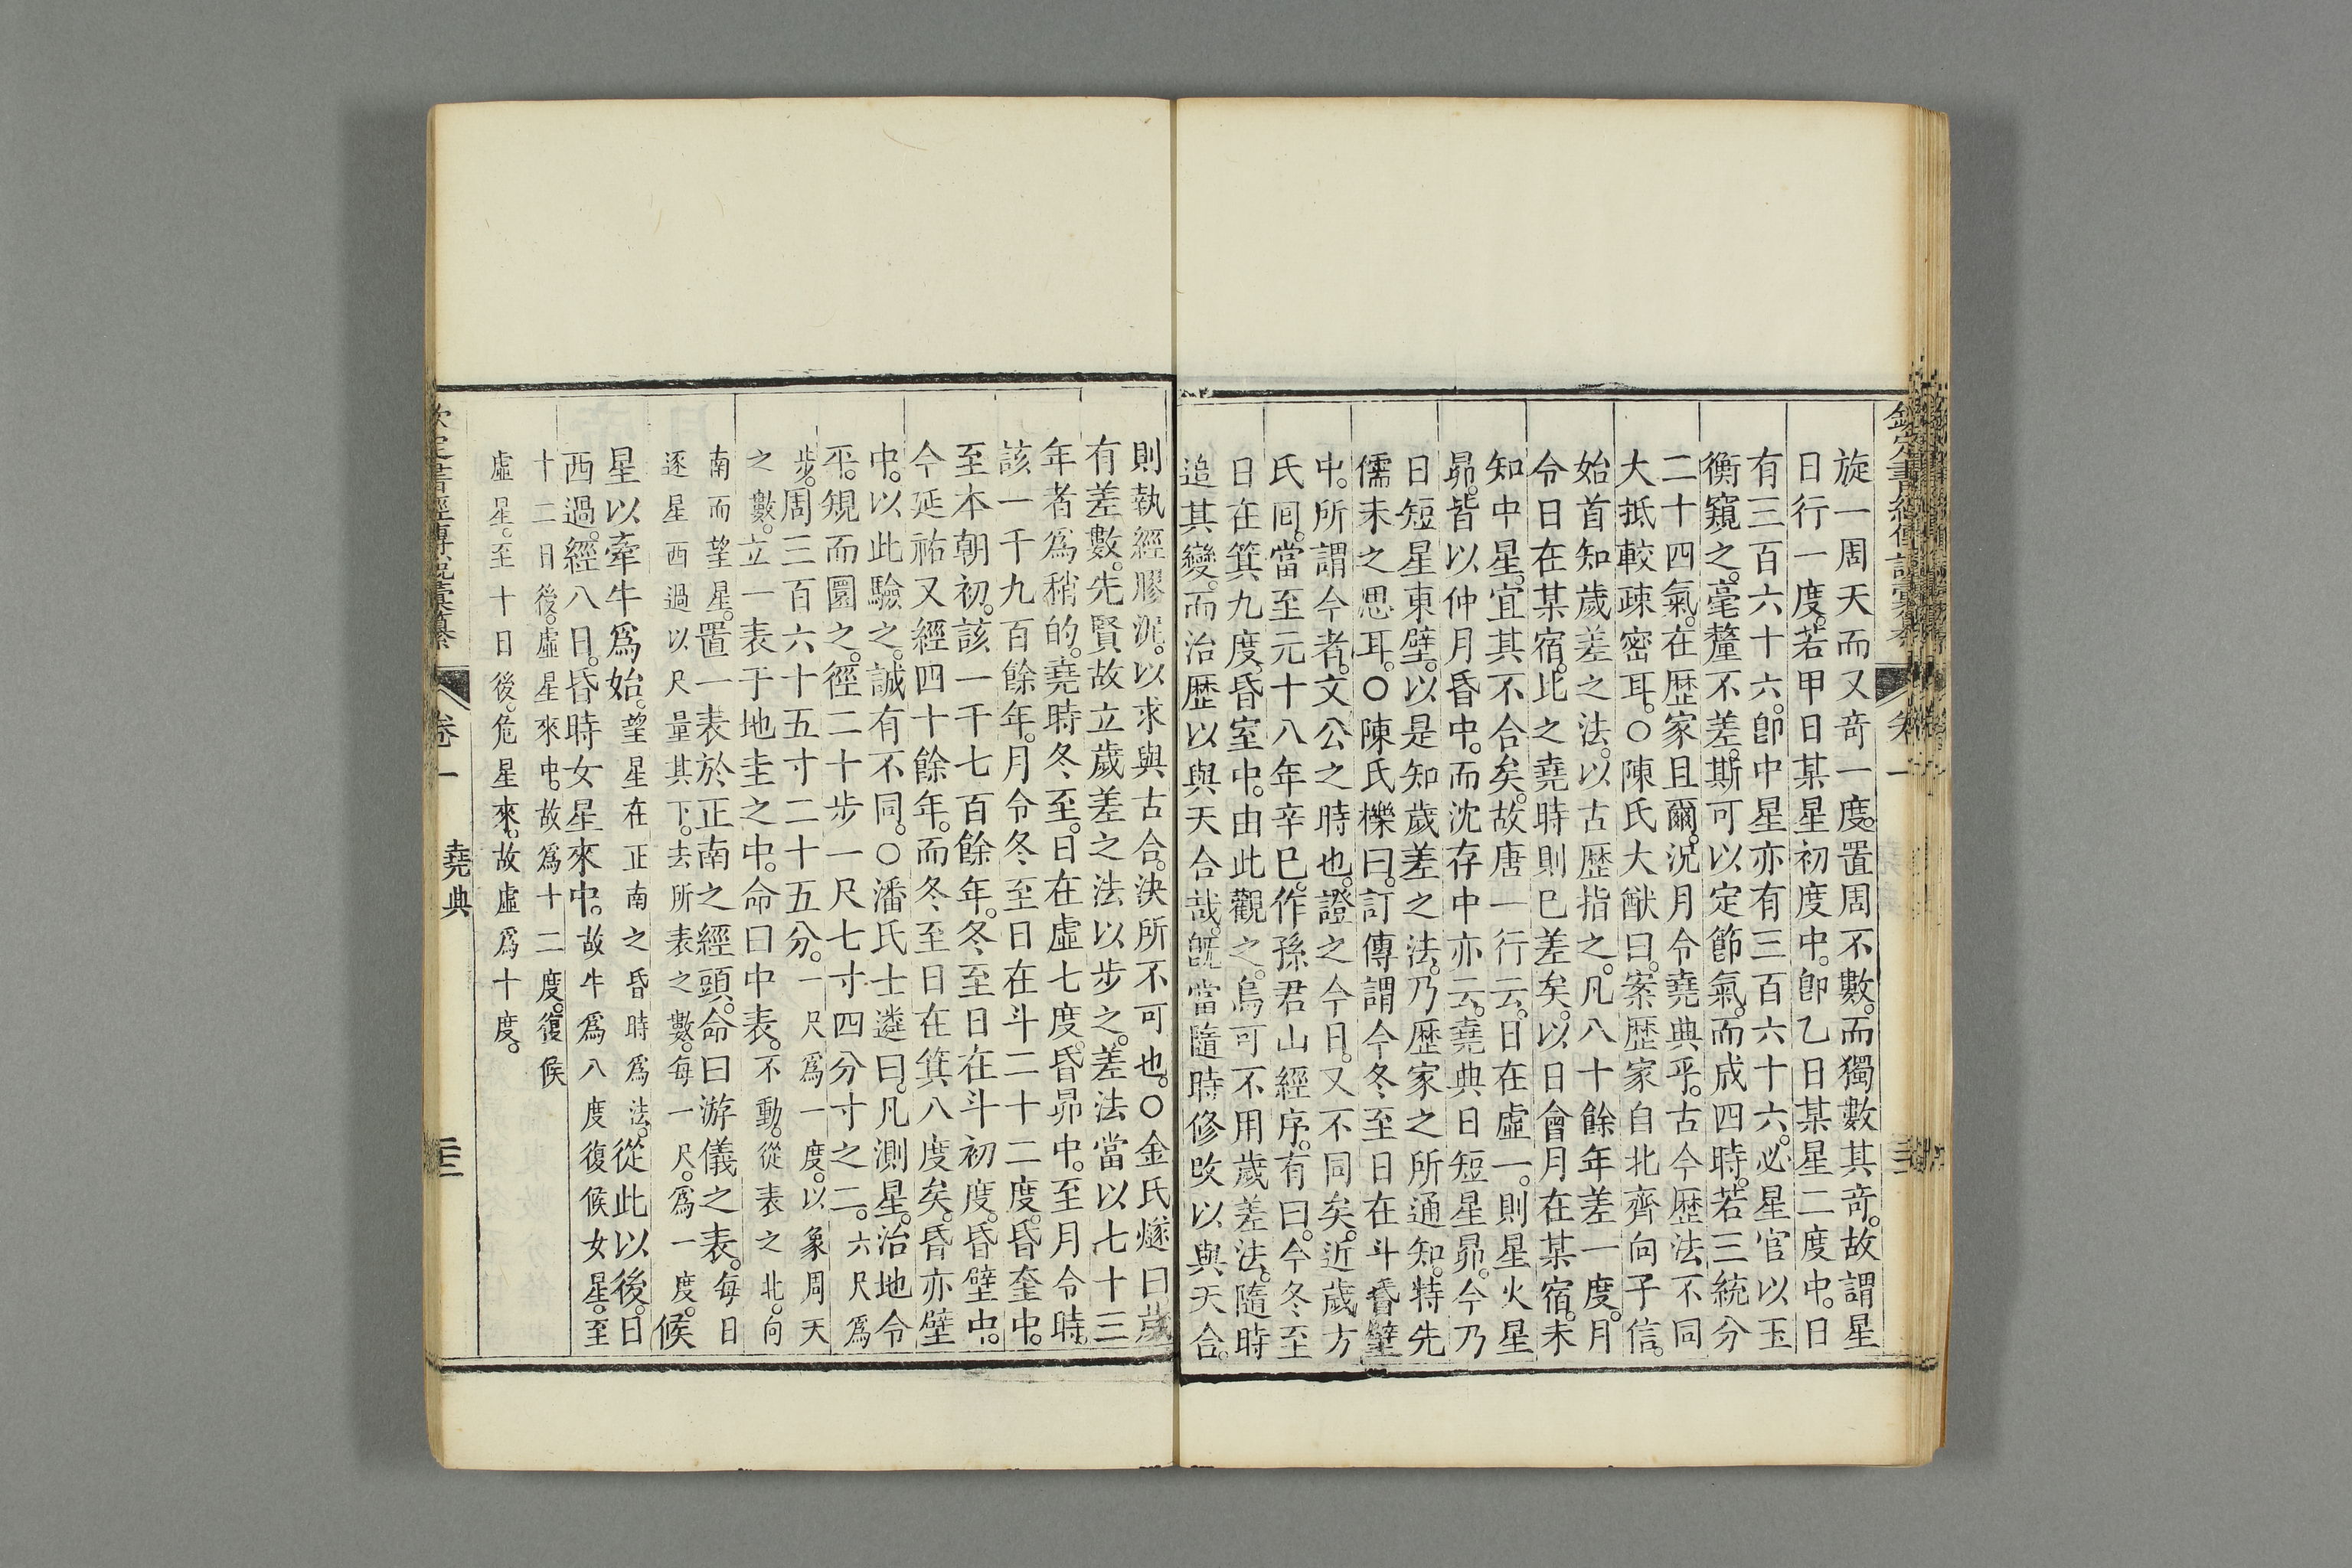 欽定書經傳說彙纂 卷一
旋一周天而又竒一度。置周不數。而獨數其竒。故謂星
日行一度。若甲日某星初度中。卽乙日某星二度中。日
有三百六十六。卽中星亦有三百六十六。必星官以玉
衡窺之。毫釐不差。斯可以定節氣。而成四時。若三統分
二十四氣。在歴家且爾。況月令堯典乎。古今歴法不同
大抵較疎密耳。○陳氏大猷曰。案歴家自北齊向子信。
始首知歲差之法。以古歴指之。凡八十餘年差一度。月
令日在某宿。比之堯時則已差矣。以日會月在某宿。未
知中星。宜其不合矣。故唐一行云。日在虛一。則星火星
昴。皆以仲月昏中。而沈存中亦云。堯典日短星昴。今乃
日短星東壁。以是知歲差之法。乃歴家之所通知。特先
儒未之思耳。○陳氏櫟曰。訂傳謂今冬至日在斗昏壁
中。所謂今者。文公之時也。證之今日。又不同矣。近歲方
氏囘。當至元十八年辛巳。作孫君山經序。有曰。今冬至
日在箕九度。昏室中。由此觀之。烏可不用歲差法。隨時
追其變。而治歴以與天合哉。旣當隨時修改以與天合。
則執經膠泥。以求與古合。決所不可也。○金氏燧曰歲
有差數。先賢故立歲差之法以步之。差法當以七十三
年者爲稍的。堯時冬至。日在虛七度。昏昴中。至月令時。
該一千九百餘年。月令冬至日在斗二十二度。昏奎中。
至本朝初。該一千七百餘年。冬至日在斗初度。昏壁中。
今延祐又經四十餘年。而冬至日在箕八度矣。昏亦壁
中。以此驗之。誠有不同。○潘氏士遴曰。凡測星。治地令
平。規而圜之。徑二十步一尺七寸四分寸之二。六尺爲
步。周三百六十五寸二十五分。一尺爲一度。以象周天
之數。立一表于地圭之中。命曰中表。不動。從表之北。向
南而望星。置一表於正南之經頭。命曰游儀之表。每日
逐星西過以尺量其下。去所表之數。每一尺。爲一度。候
星以牽牛爲始。望星在正南之昏時爲法。從此以後。日
西過。經八日。昏時女星來中。故牛爲八度復候女星。至
十二日後。虛星來中。故爲十二度。復候
虛星。至十日後。危星來。故虛爲十度。
欽定書經傳說彙纂 卷一 堯典